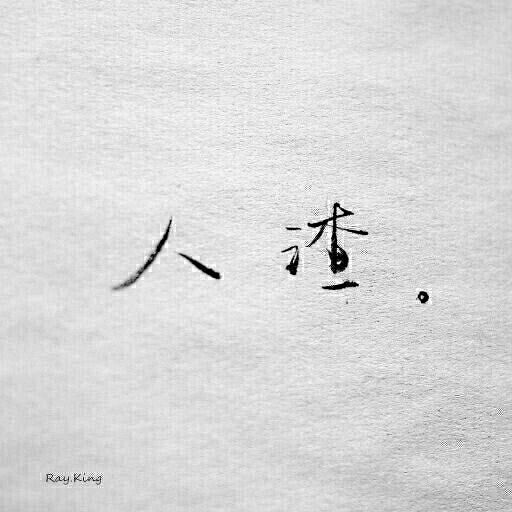 人渣。
Ray.King